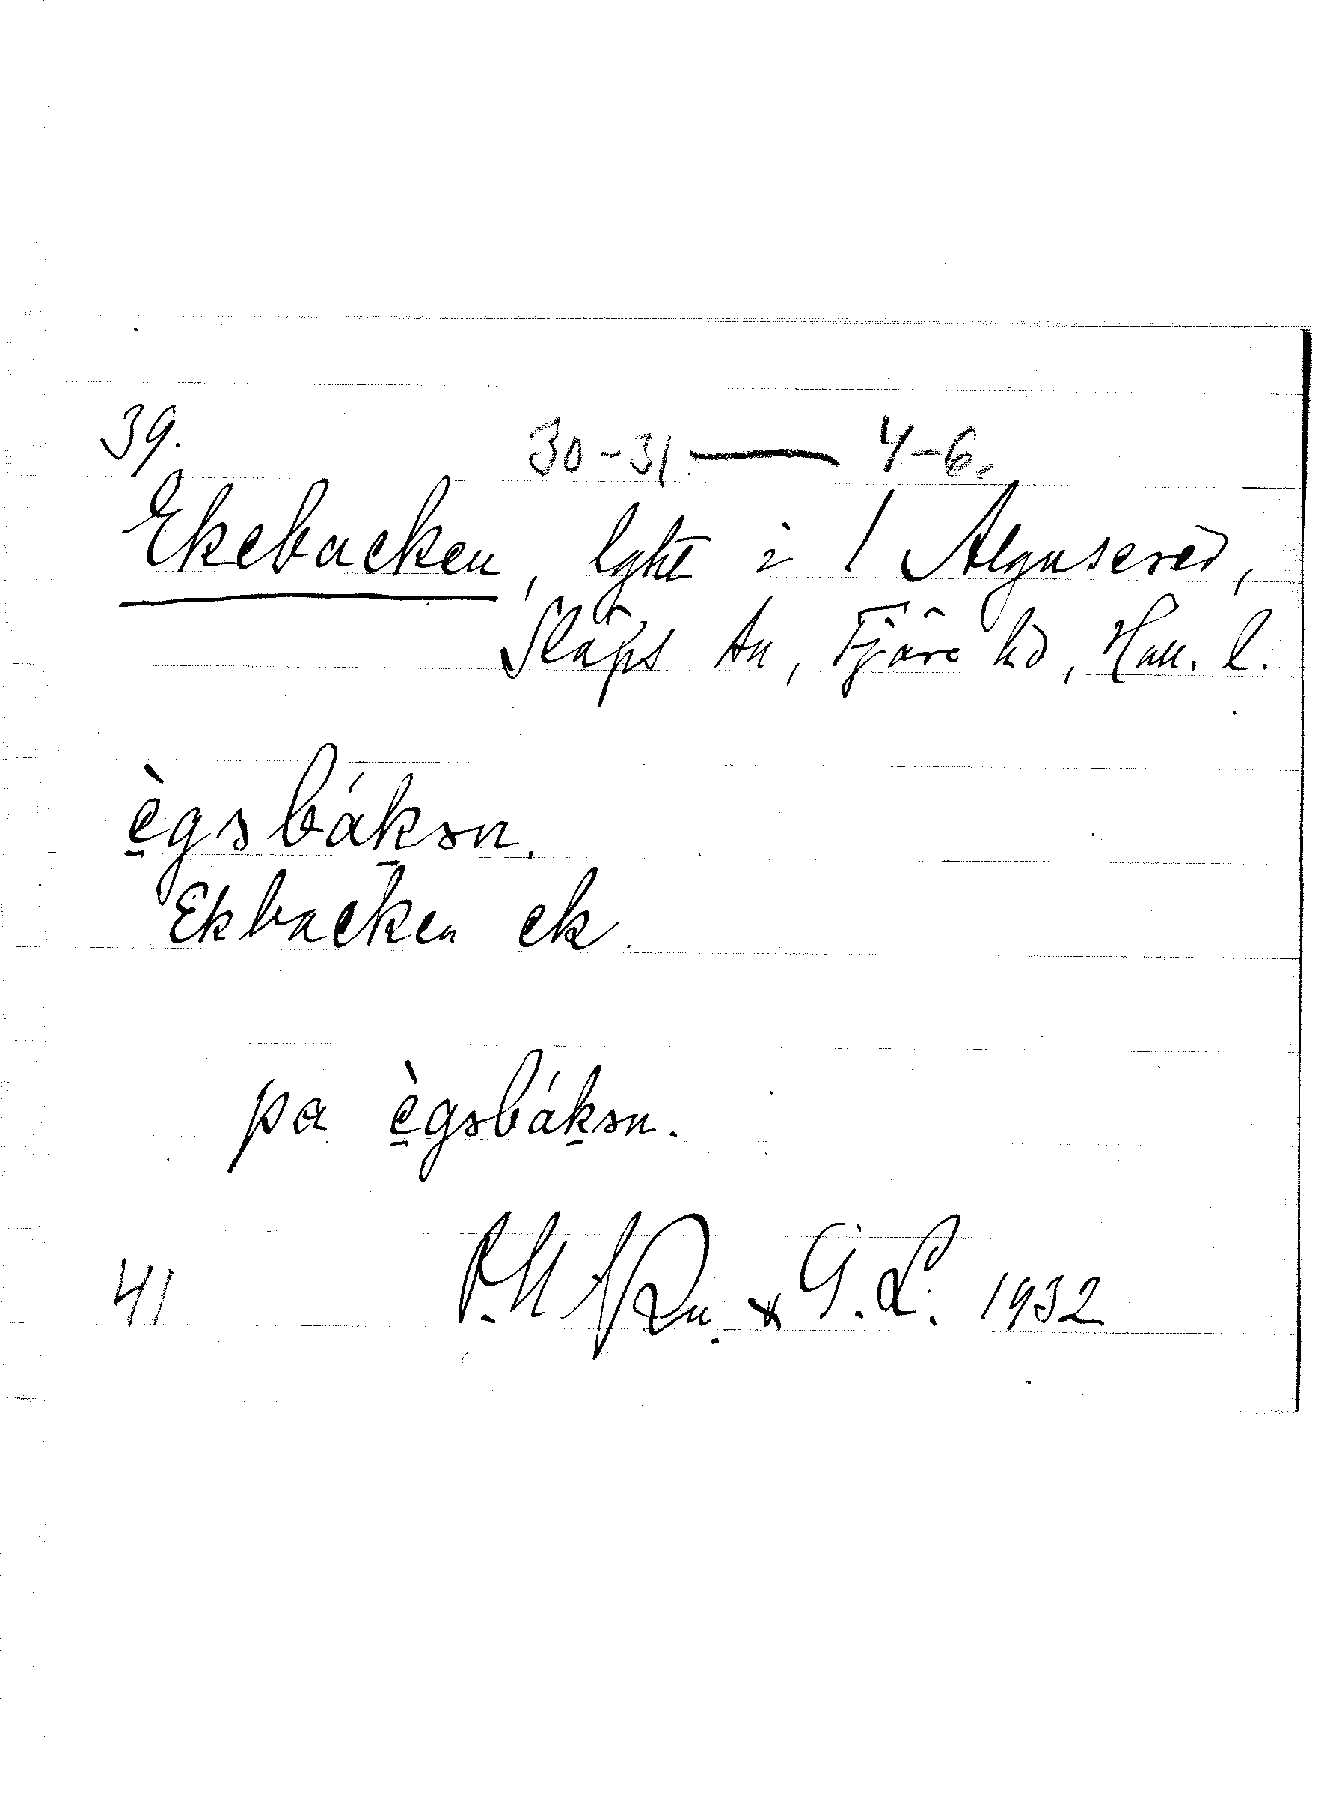 39.
30-31 — 4-6.
Ekebacken, lght i 1 Algusered,
Släps sn, Fjäre hd, Hall. l.
ègəbákən.
Ekbacken ek
pa ègəbákən.
41 G.L. 1932